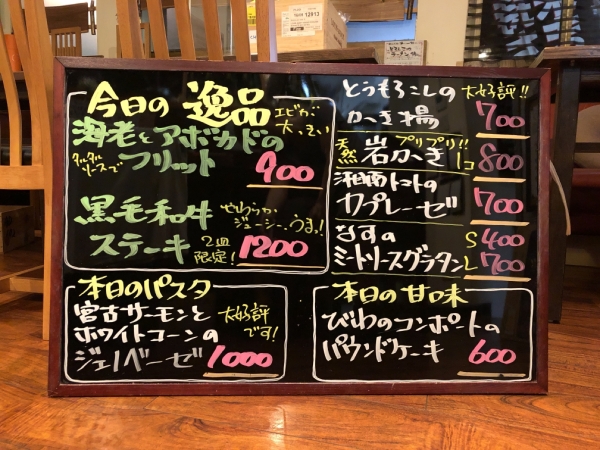 今日の 逸品
エビが
大きい
海老とアボカドの
タルタル
ソースで
フリット
900
黒毛和牛
ステーキ
やわらか
ジューシー、うま!
2皿
限定!
1200
本日のパスタ
宮古サーモンと
ホワイトコーンの
ジェノベーゼ
大好評
です!
1000
とうもろこしの
大好評!!
かき揚
700
天然
岩がき
プリプリ!!
1コ
800
湘南トマトの
カプレーゼ
700
なすの
ミートソースグラタン
S 400
L 700
本日の甘味
びわのコンポートの
パウンドケーキ
600